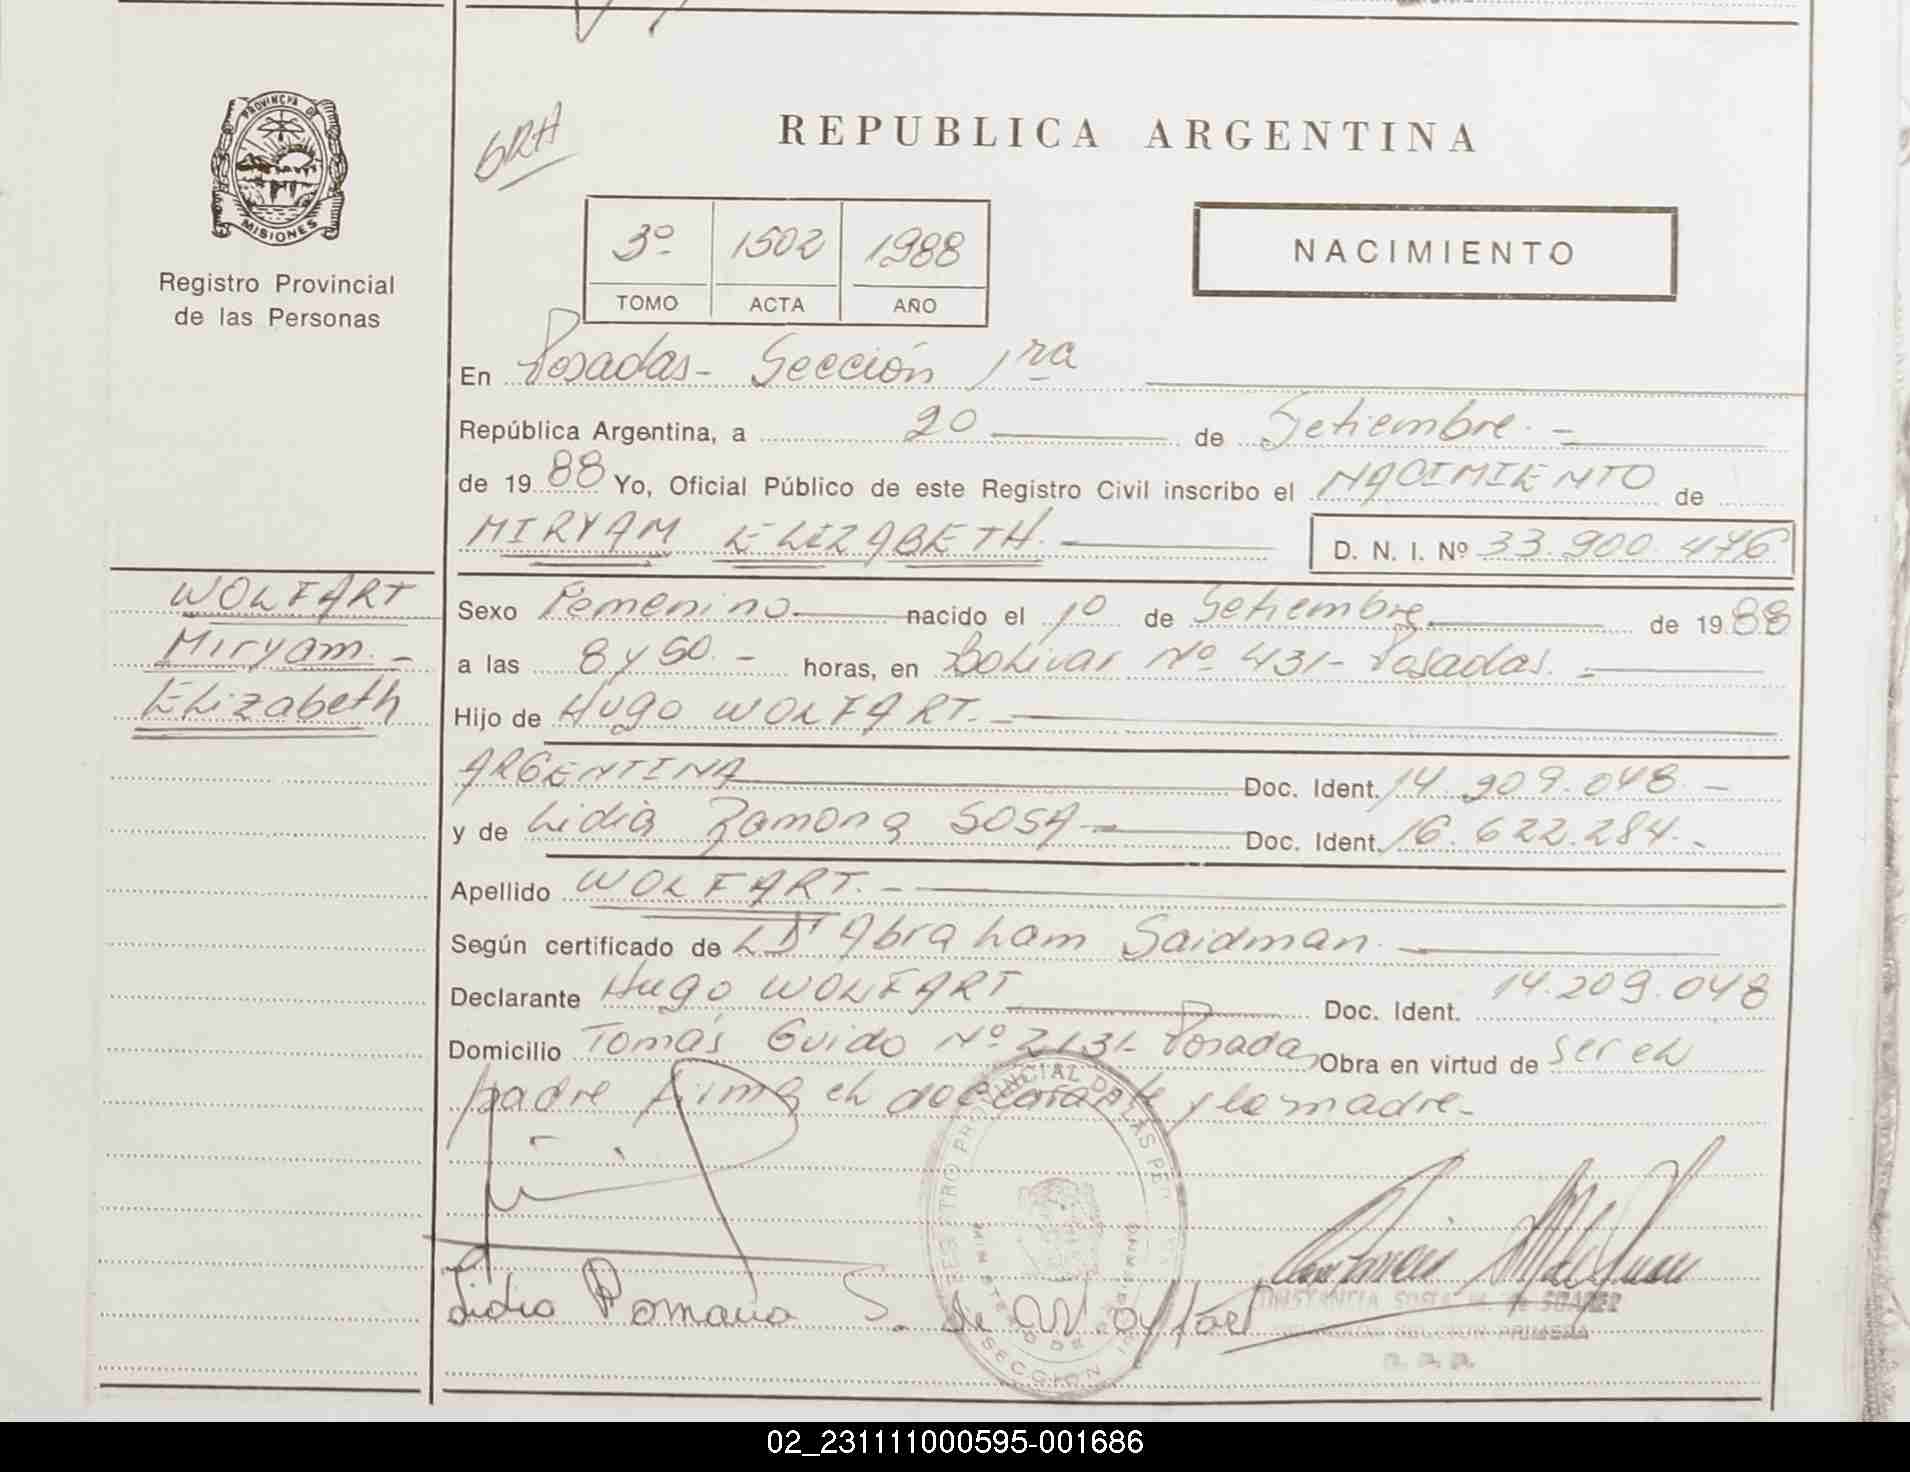 PROVINCIA DE
MISIONES
Registro Provincial
de las Personas
GRA
REPUBLICA ARGENTINA
3º 1502 1988
TOMO ACTA AÑO
NACIMIENTO
En Posadas - Sección 1ra
República Argentina, a 20 de Setiembre. -
de 19 88 Yo, Oficial Público de este Registro Civil inscribo el NACIMIENTO de
MIRYAM ELIZABETH. D. N. I. Nº 33.900.476
WOLFART
Miryam. -
Elizabeth
Sexo Femenino nacido el 1º de Setiembre de 19 88
a las 8 y 50. - horas, en Bolivar Nº 431- Posadas. -
Hijo de Hugo WOLFART. -
ARGENTINA Doc. Ident. 14.209.048. -
y de Lidia Ramona SOSA - Doc. Ident. 16.622.284. -
Apellido WOLFART. -
Según certificado de Abraham Saidman.
Declarante Hugo WOLFART Doc. Ident. 14.209.048
Domicilio Tomás Guido Nº 2131- Posadas Obra en virtud de ser el
padre firma el declarante y la madre. -
Lidia Romana S. de Wolfart
SECCION
02_231111000595-001686